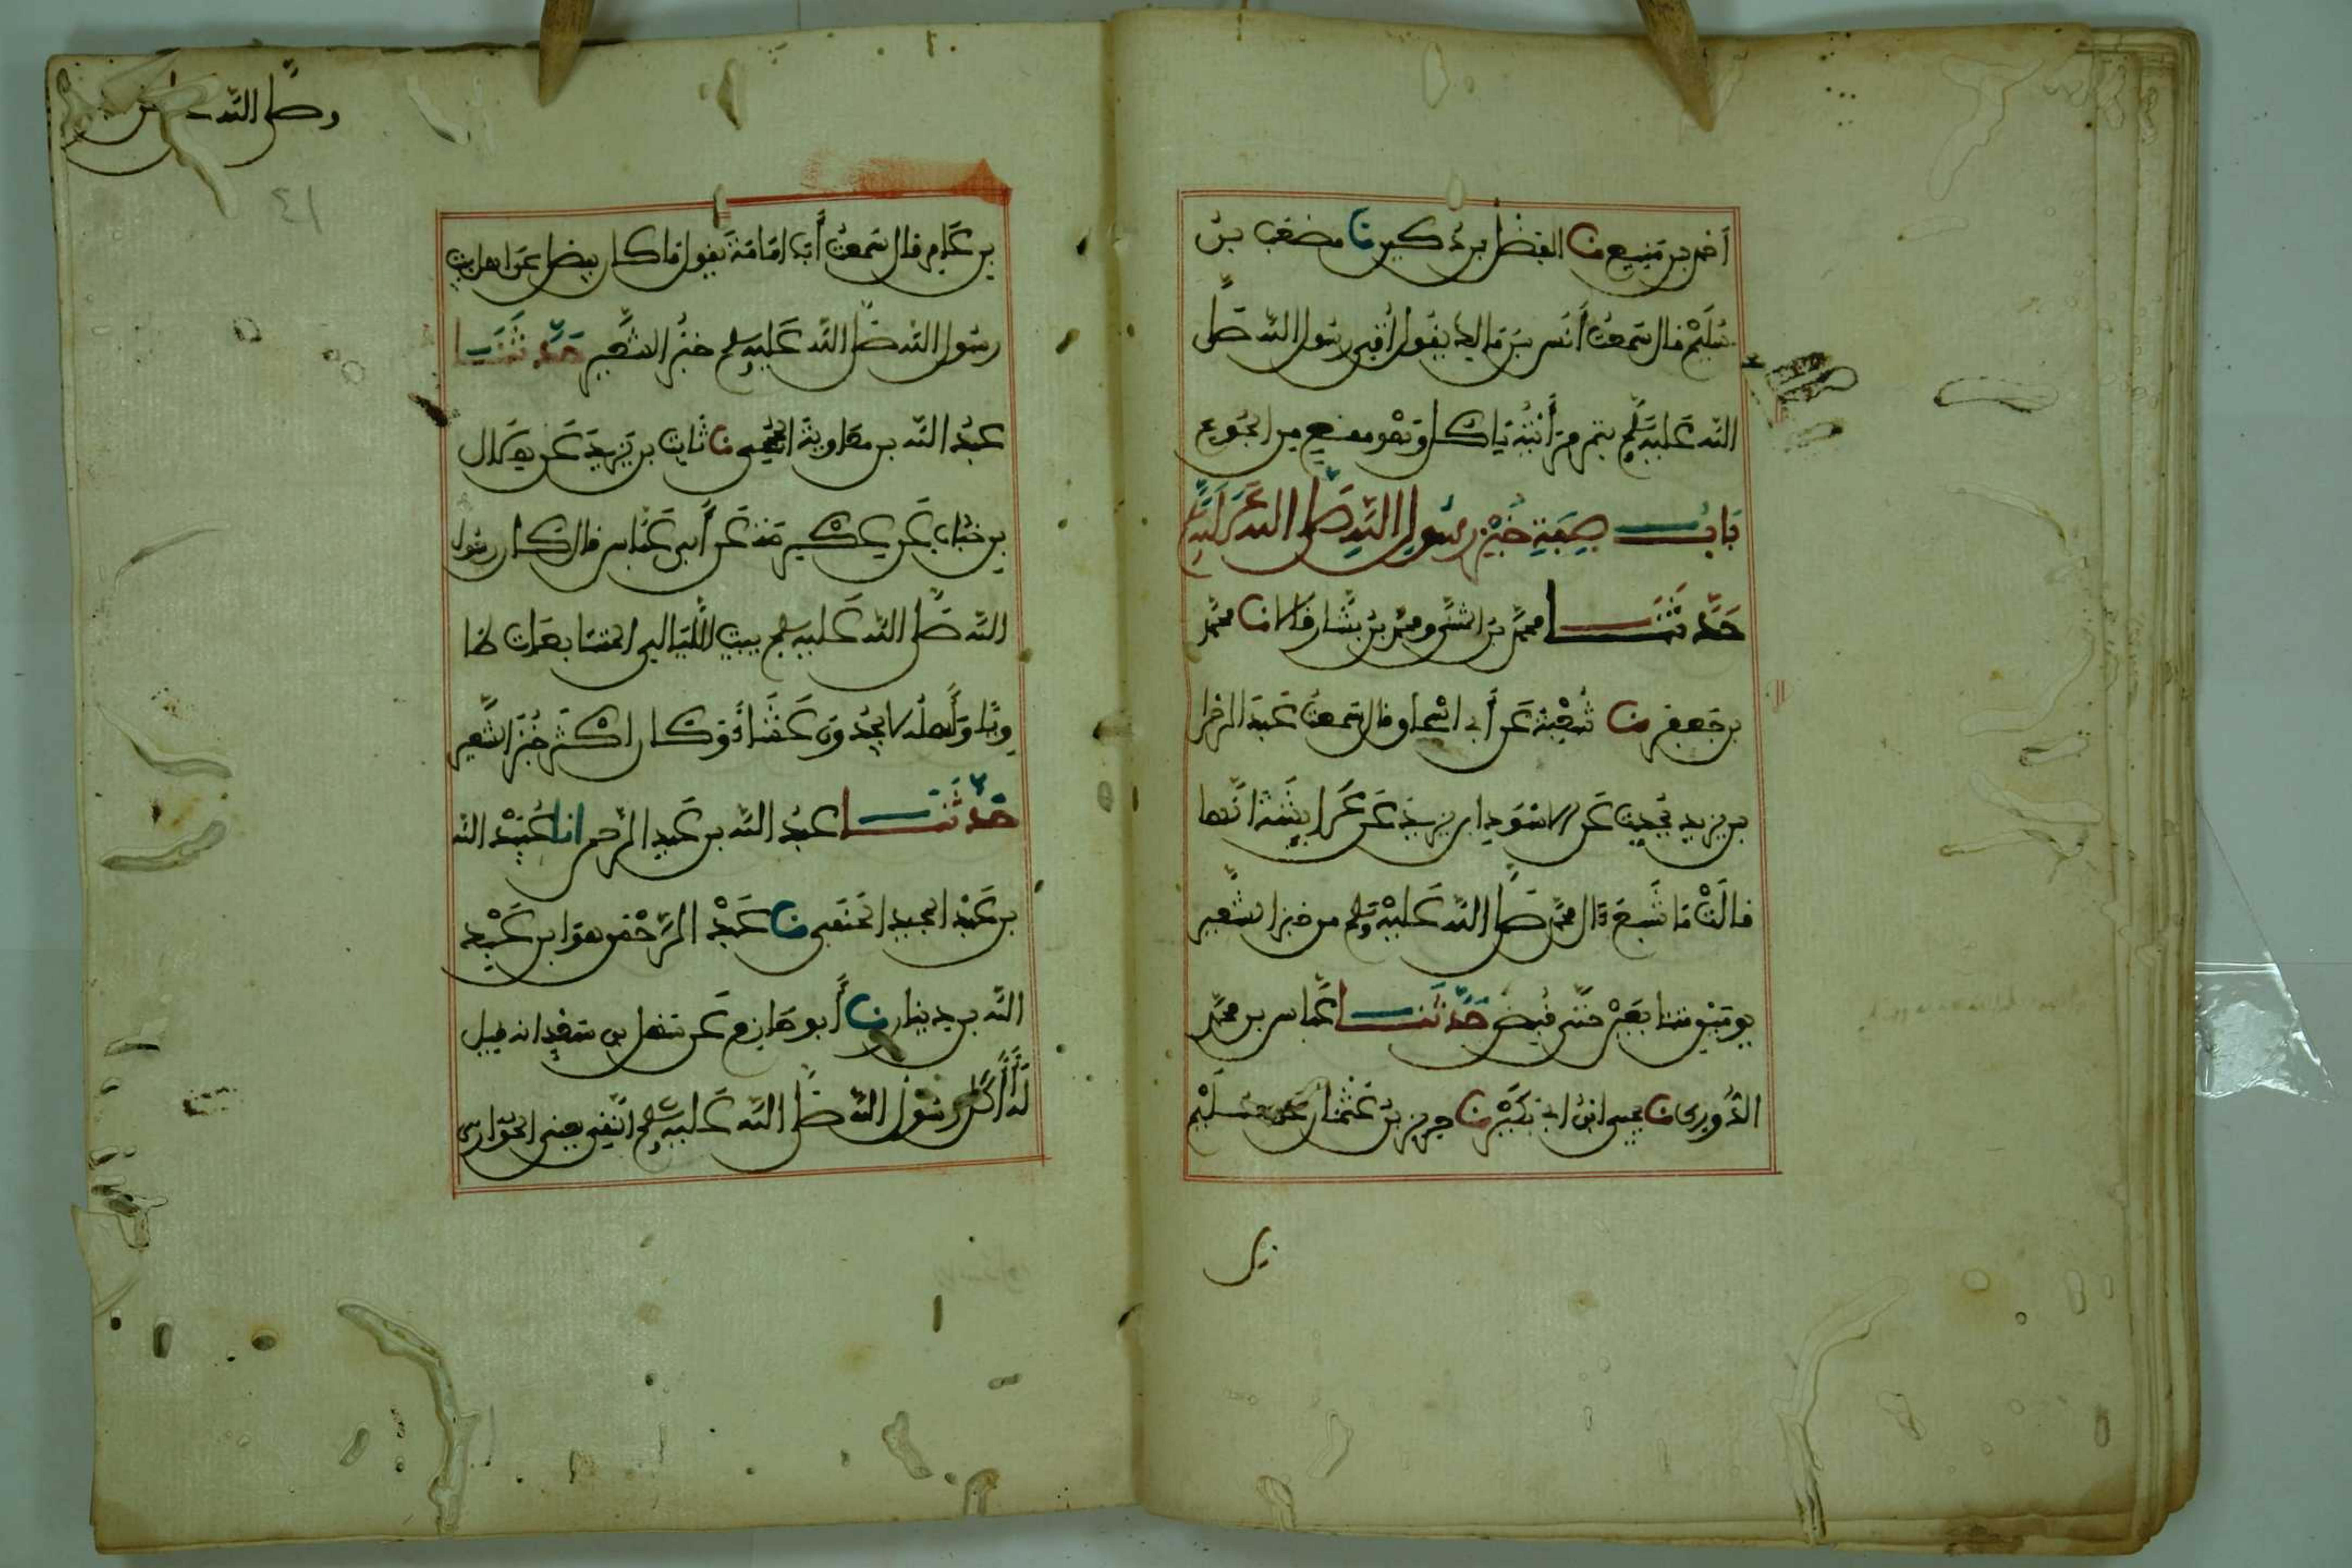 أحمد بن منيع نا الفضل بن دكين نا مصعب بن
سليم قال سمعت أنس بن مالك يقول أتي رسول الله صلى
الله عليه وسلم بتمر فرأيته ياكل وهو مقع من الجوع
باب صفة خبز رسول الله صلى الله عليه
حدثنا محمد بن المثنى ومحمد بن بشار قالا نا محمد
بن جعفر نا شعبة عن أبي اسحاق قال سمعت عبد الرحمن
بن يزيد يحدث عن الاسود ابن يزيد عن عايشة انها
قالت ما شبع ءال محمد صلى الله عليه وسلم من خبز الشعير
يومين متتابعين حتى قبض حدثنا عباس بن محمد
الدوري نا يحيى ابن ابي بكير نا حريز بن عثمان عن سليم
بن عامر قال سمعت أبا امامة يقول ما كان يفضل عن اهل بيت
رسول الله صلى الله عليه وسلم خبز الشعير حدثنا
عبد الله بن معاوية الجمحي نا ثابت بن يزيد عن هلال
بن خباب عن عكرمة عن أبن عباس قال كان رسول
الله صلى الله عليه وسلم يبيت الليالي المتتابعات طا
ويا وأهله لا يجدون عشاء وكان اكثر خبز الشعير
حدثنا عبد الله بن عبد الرحمن انا عبيد الله
بن عبد المجيد الحنفي نا عبد الرحمن هو ابن عبد
الله بن دينار نا أبو حازم عن سهل بن سعد انه قيل
له أأكل رسول الله صلى الله عليه وسلم النقي يعني الحوارى
وصلى الله
٤١